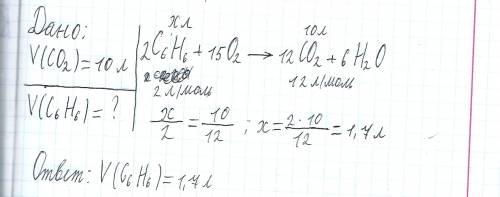 Дано:
V(CO₂)=10 л
V(C₆H₆)=?
x л 10 л
2C₆H₆ + 15O₂ → 12CO₂ + 6H₂O
2 л/мол 12 л/мол
x/2 = 10/12 ; x = 2·10/12 = 1,7 л
Ответ: V(C₆H₆)=1,7 л